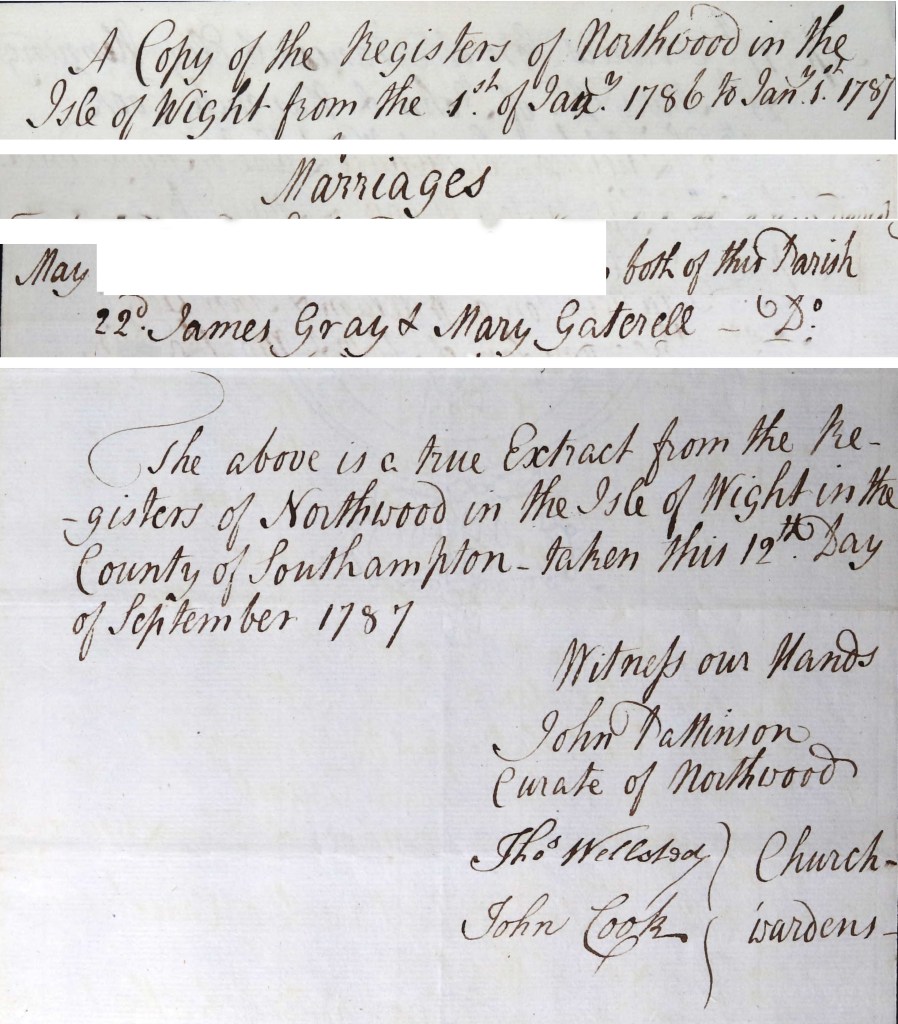 A Copy of the Registers of Northwood in the
Isle of Wight from the 1.st of Jan.y 1786 to Jan.y 1.st 1787
Marriages
May both of this Parish
22d. James Gray & Mary Gaterell - Do.
The above is a true Extract from the Re-
-gisters of Northwood in the Isle of Wight in the
County of Southampton - taken this 12th. Day
of September 1787
Witneſs our Hands
John Pattinson
Curate of Northwood
Thos Wellsted } Church-
John Cook } wardens-